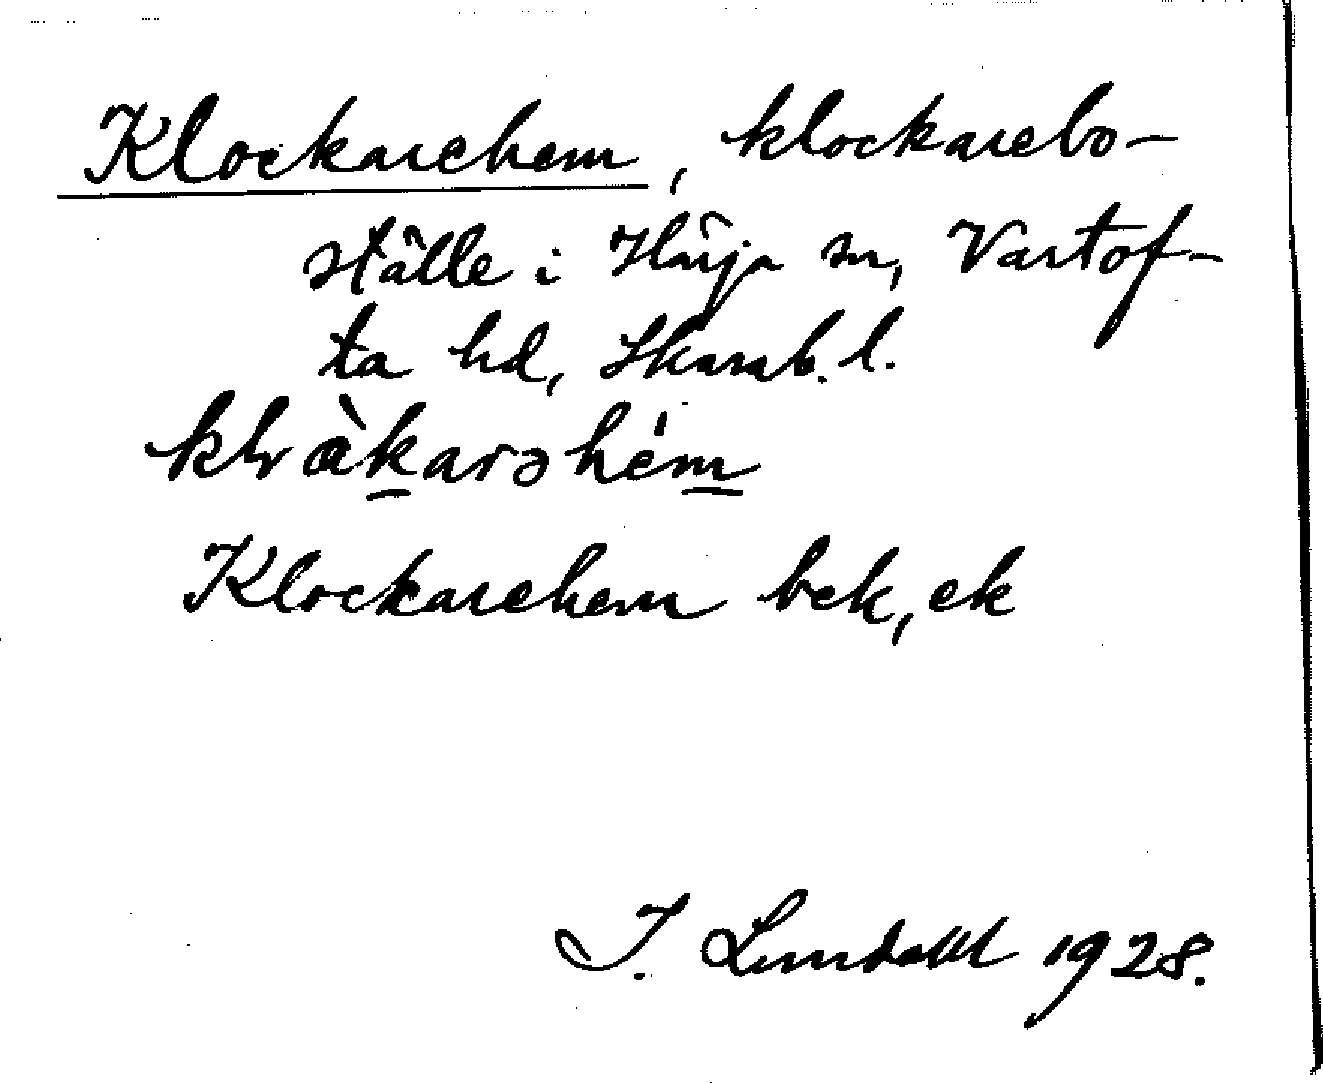 Klockarehem, klockarebo-
ställe i Härja sn, Vartof-
ta hd, Skarab. l.
Klockarehem bek, ek
I. Lundahl 1928.